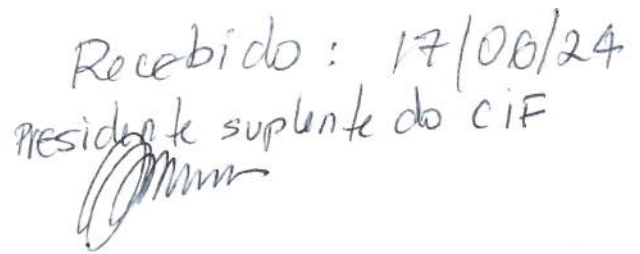 Recebido: 17/06/24
Presidente suplente do CIF